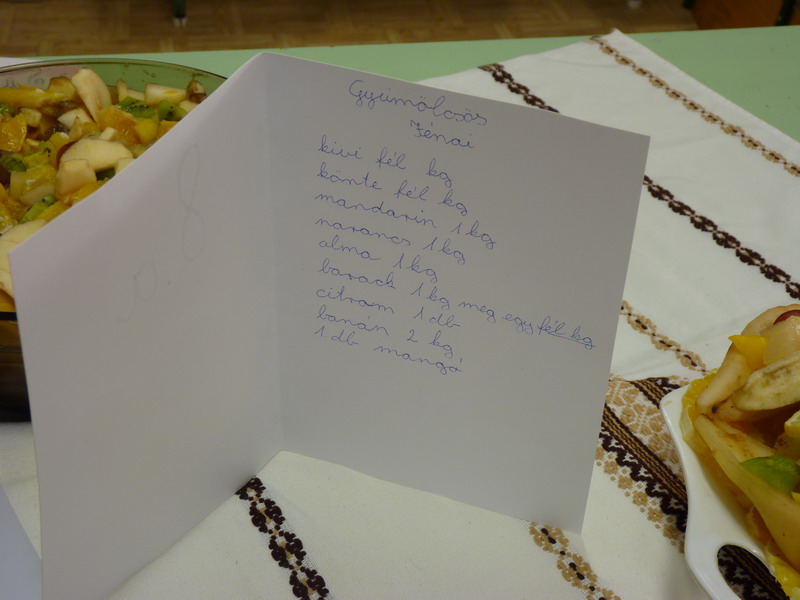 Gyümölcsös
Jénai
kivi fél kg
körte fél kg
mandarin 1 kg
narancs 1 kg
alma 1 kg
barack 1 kg meg egy fél kg
citrom 1 db
banán 2 kg
1 db mangó